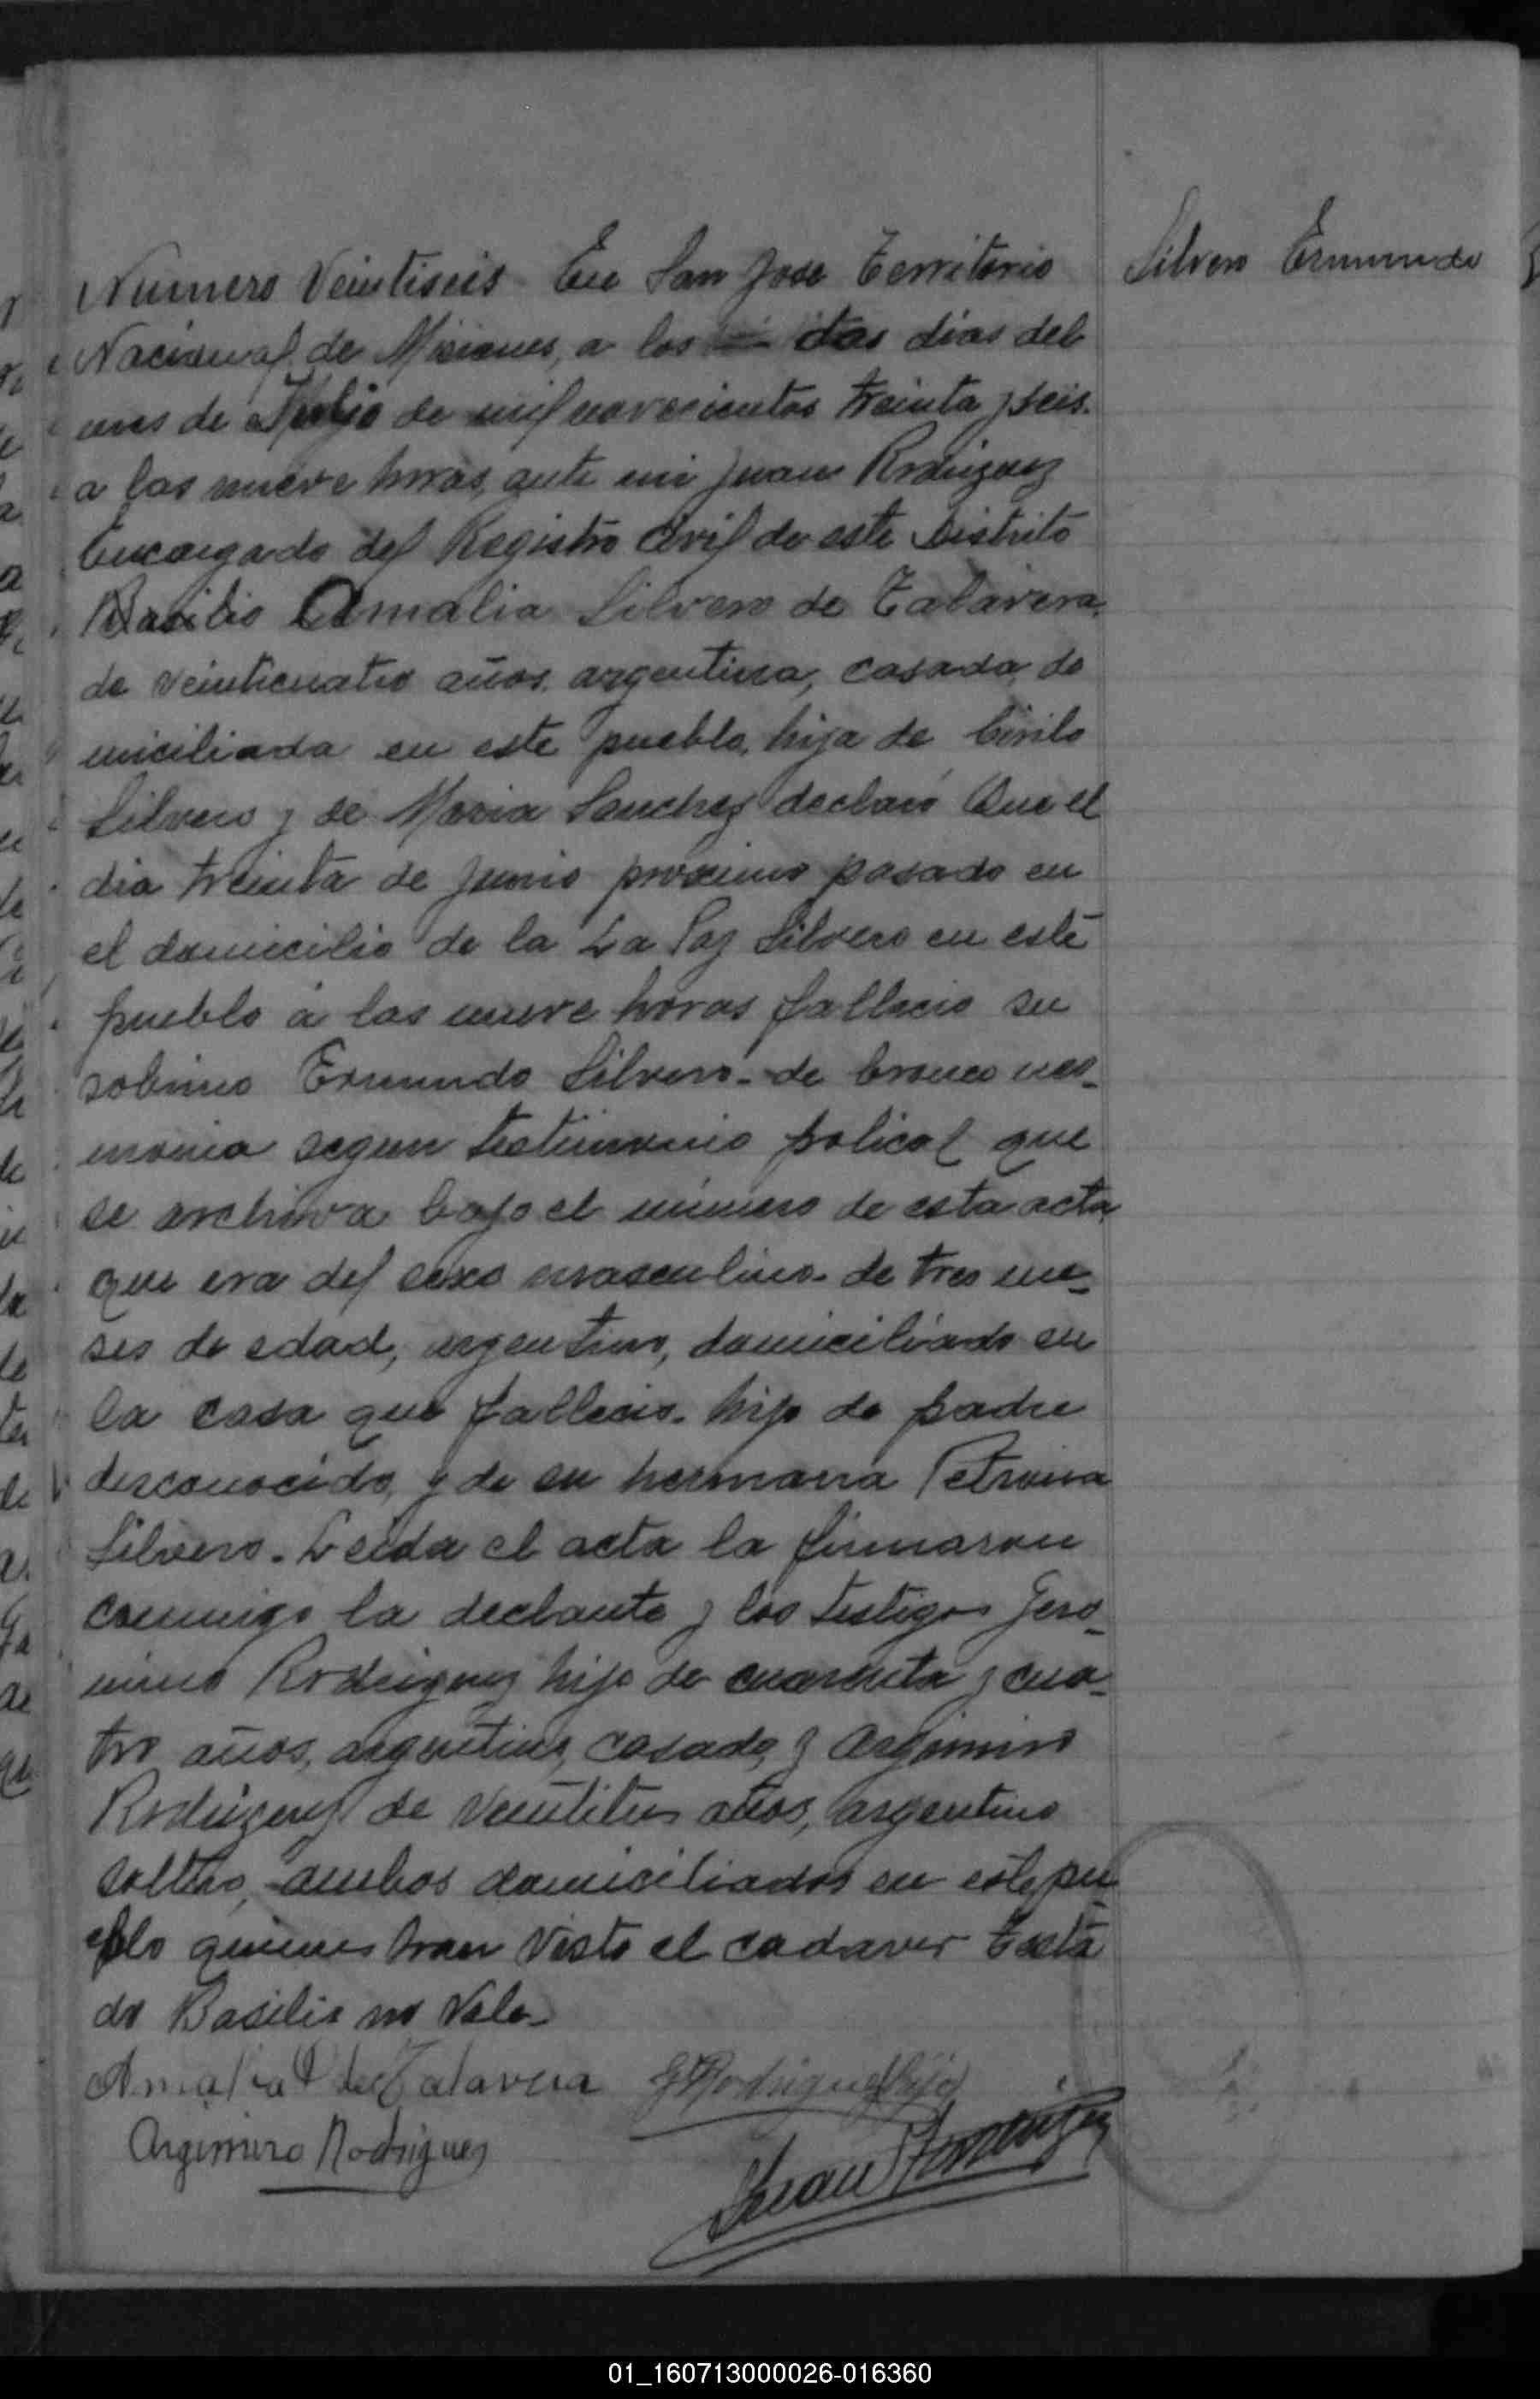 Silvero Ermundo
Numero Veintiseis En San Jose Territorio
Nacional de Misiones, a los dos dias del
mes de Julio de mil novecientos treinta y seis.
a las nueve horas, ante mi Juan Rodriguez
Encargado del Registro Civil de este Distrito
Basilio Amalia Silvero de Talavera,
de veinticuatro años, argentina, casada, do
miciliada en este pueblo, hija de Cirilo
Silvero y de Maria Sanchez declaró Que el
dia treinta de Junio proximo pasado en
el domicilio de la La Paz Silvero en este
pueblo á las nueve horas fallecio su
sobrino Ermundo Silvero - de bronco neo-
monia segun testimonio polical que
se archiva bajo el número de esta acta
que era del sexo masculino - de tres me-
ses de edad, argentino, domiciliado en
la casa que fallecio - hijo de padre
desconocido, y de su hermana Petrona
Silvero - Leida el acta la firmaron
conmigo la declante y los testigos Jero-
nimo Rodriguez hijo de cuarenta y cua-
tro años, argentino, casado, y Argimiro
Rodriguez de veintitres años, argentino
soltero, ambos domiciliados en este pu
eblo quienes han visto el cadaver Testa
do Basilio no Vale-
Amalia de Talavera G Rodriguez hijo
Argimiro Rodriguez
Juan Rodriguez
01_160713000026-016360